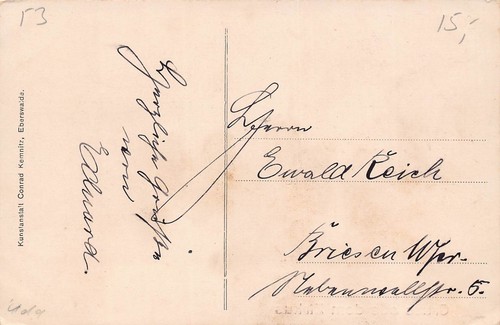 53
15,-
Kunstanstalt Conrad Kemnitz, Eberswalde.
Herzliche Grüße
von
Edward.
Herrn
Ewald Reich
Briesen Wpr.
Nebenwallstr. 5.